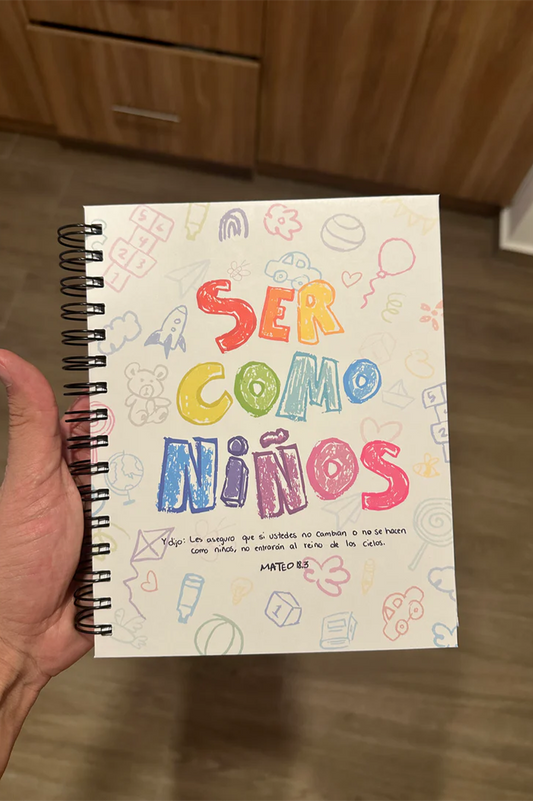 SER
COMO
NiÑOS
Y dijo: Les aseguro que si ustedes no cambian o no se hacen
como niños, no entrarán al reino de los cielos.
MATEO 18.3